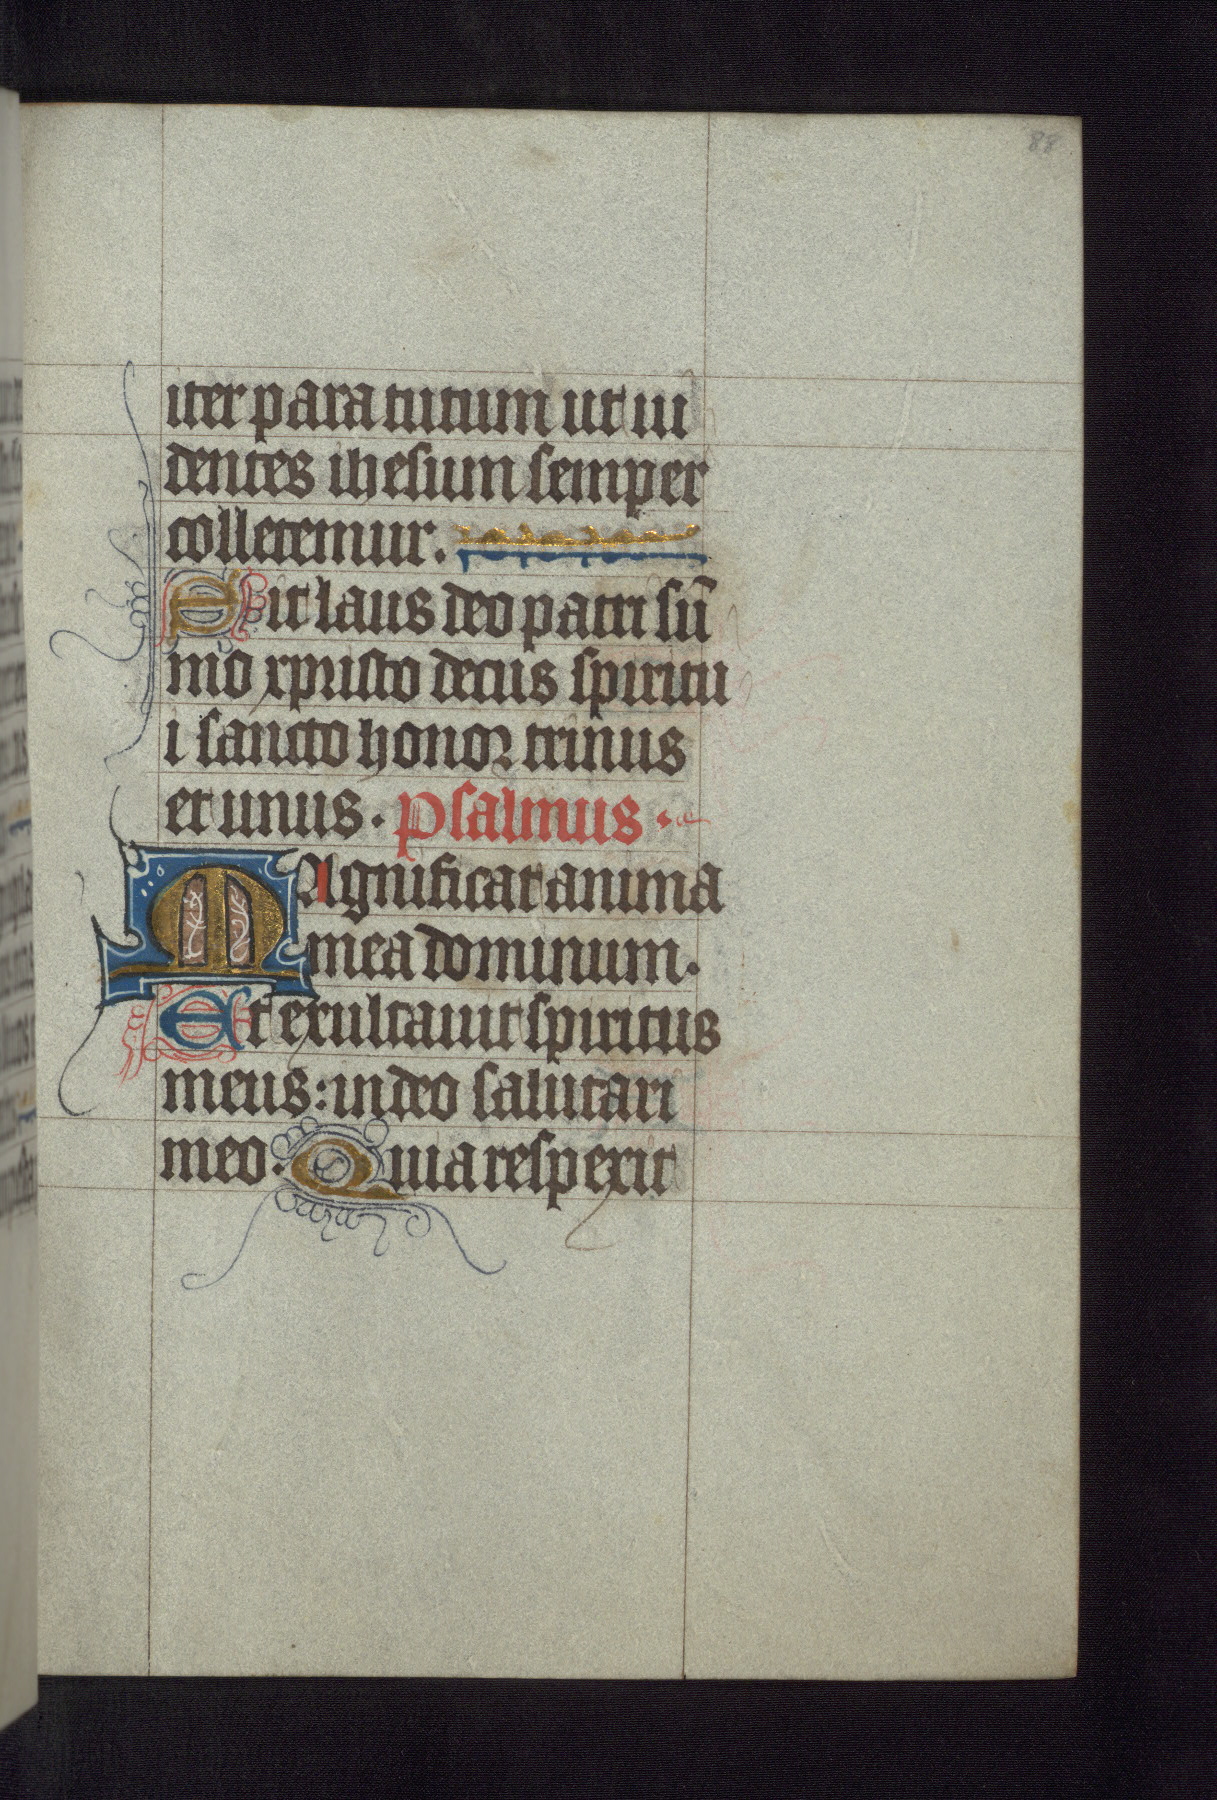 88
iter para tutum ut ui
dentes ihesum semper
colletemur.
Sit laus deo patri su̅
mo xpristo decus spiritu
i sancto honor trinus
et unus. Psalmus.
Magnificat anima
mea dominum.
Et exultauit spiritus
meus: in deo salutari
meo. Quia respexit